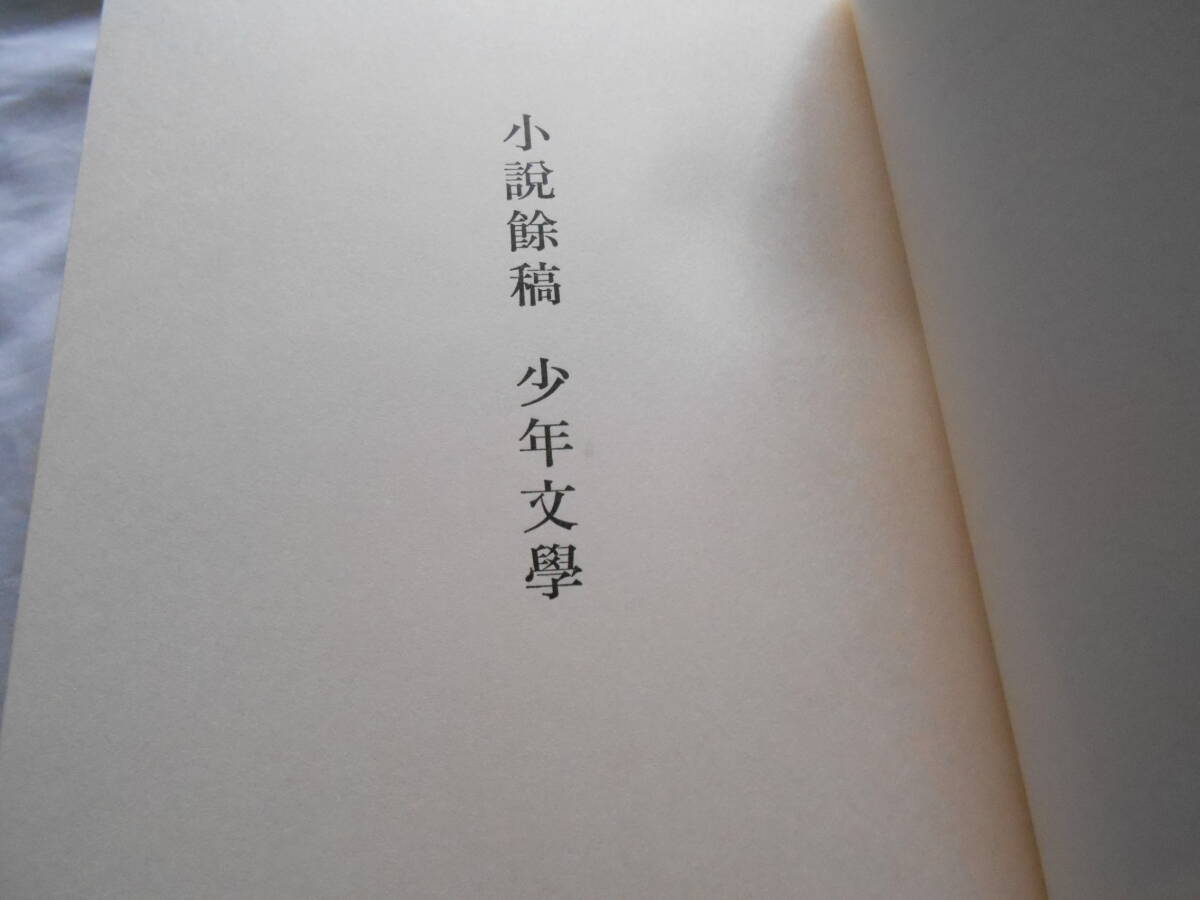 小說餘稿　少年文學